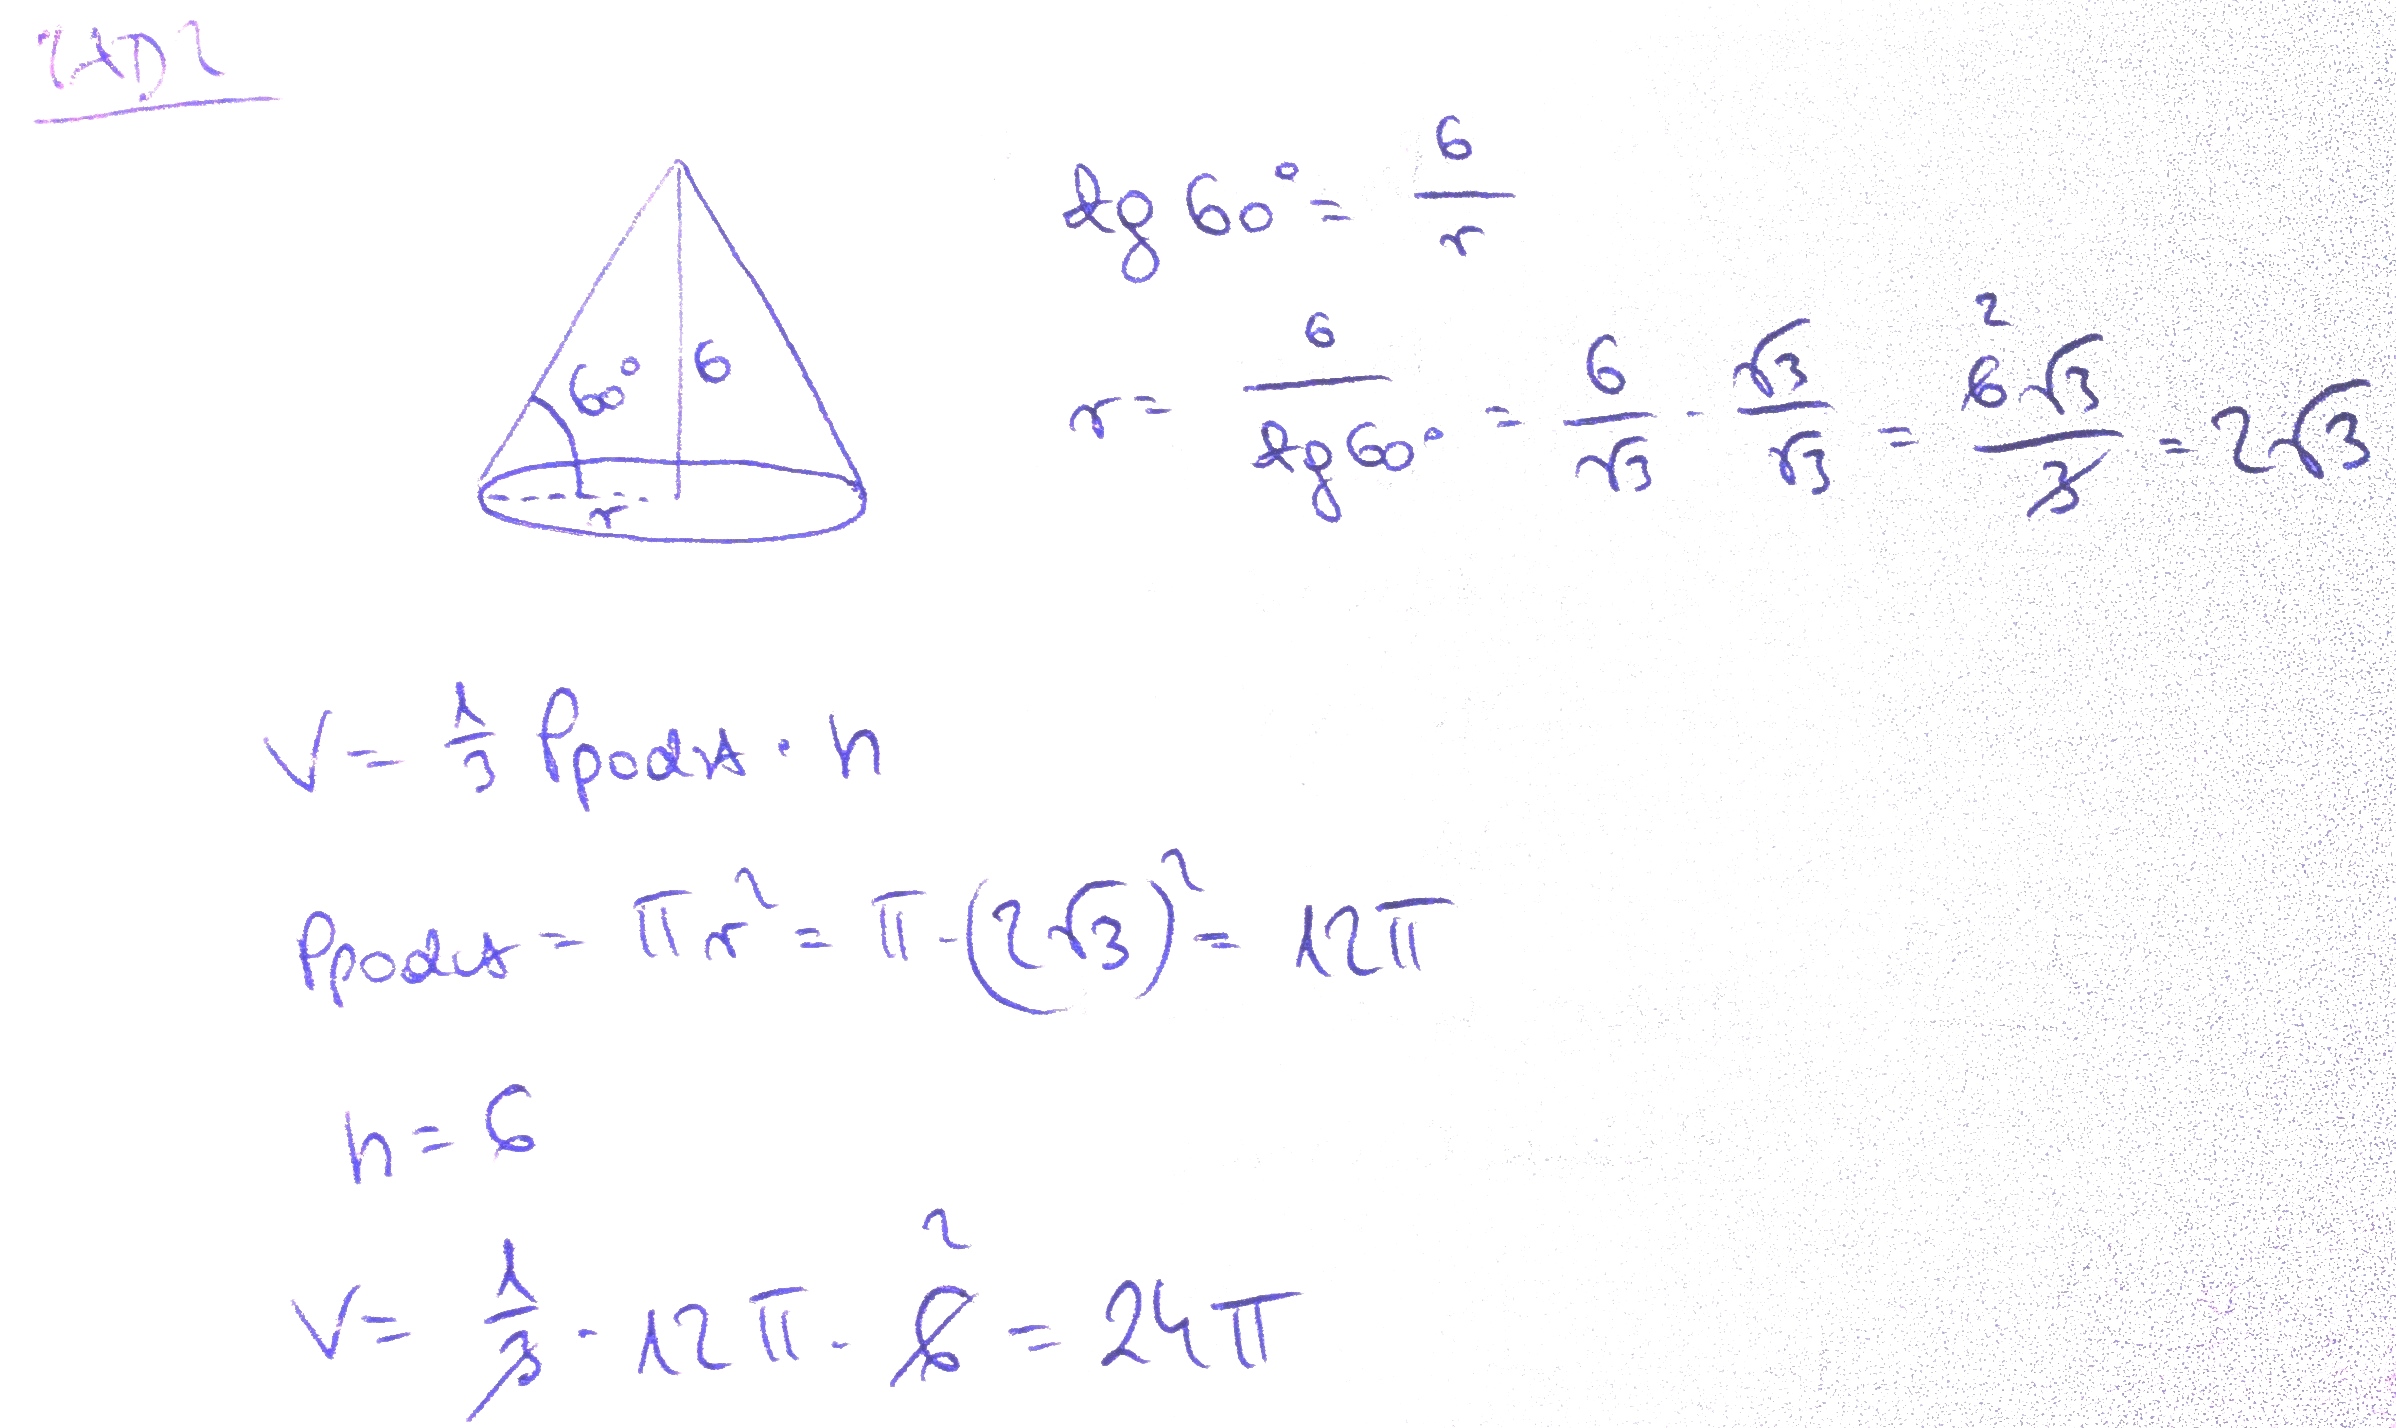 ZAD2
tg 60° = 6/r
60° 6
r
r = 6/tg 60° = 6/√3 · √3/√3 = 6√3/3 = 2√3
2
V = 1/3 Ppodst · h
Ppodst = πr² = π · (2√3)² = 12π
h = 6
2
V = 1/3 · 12π · 6 = 24π